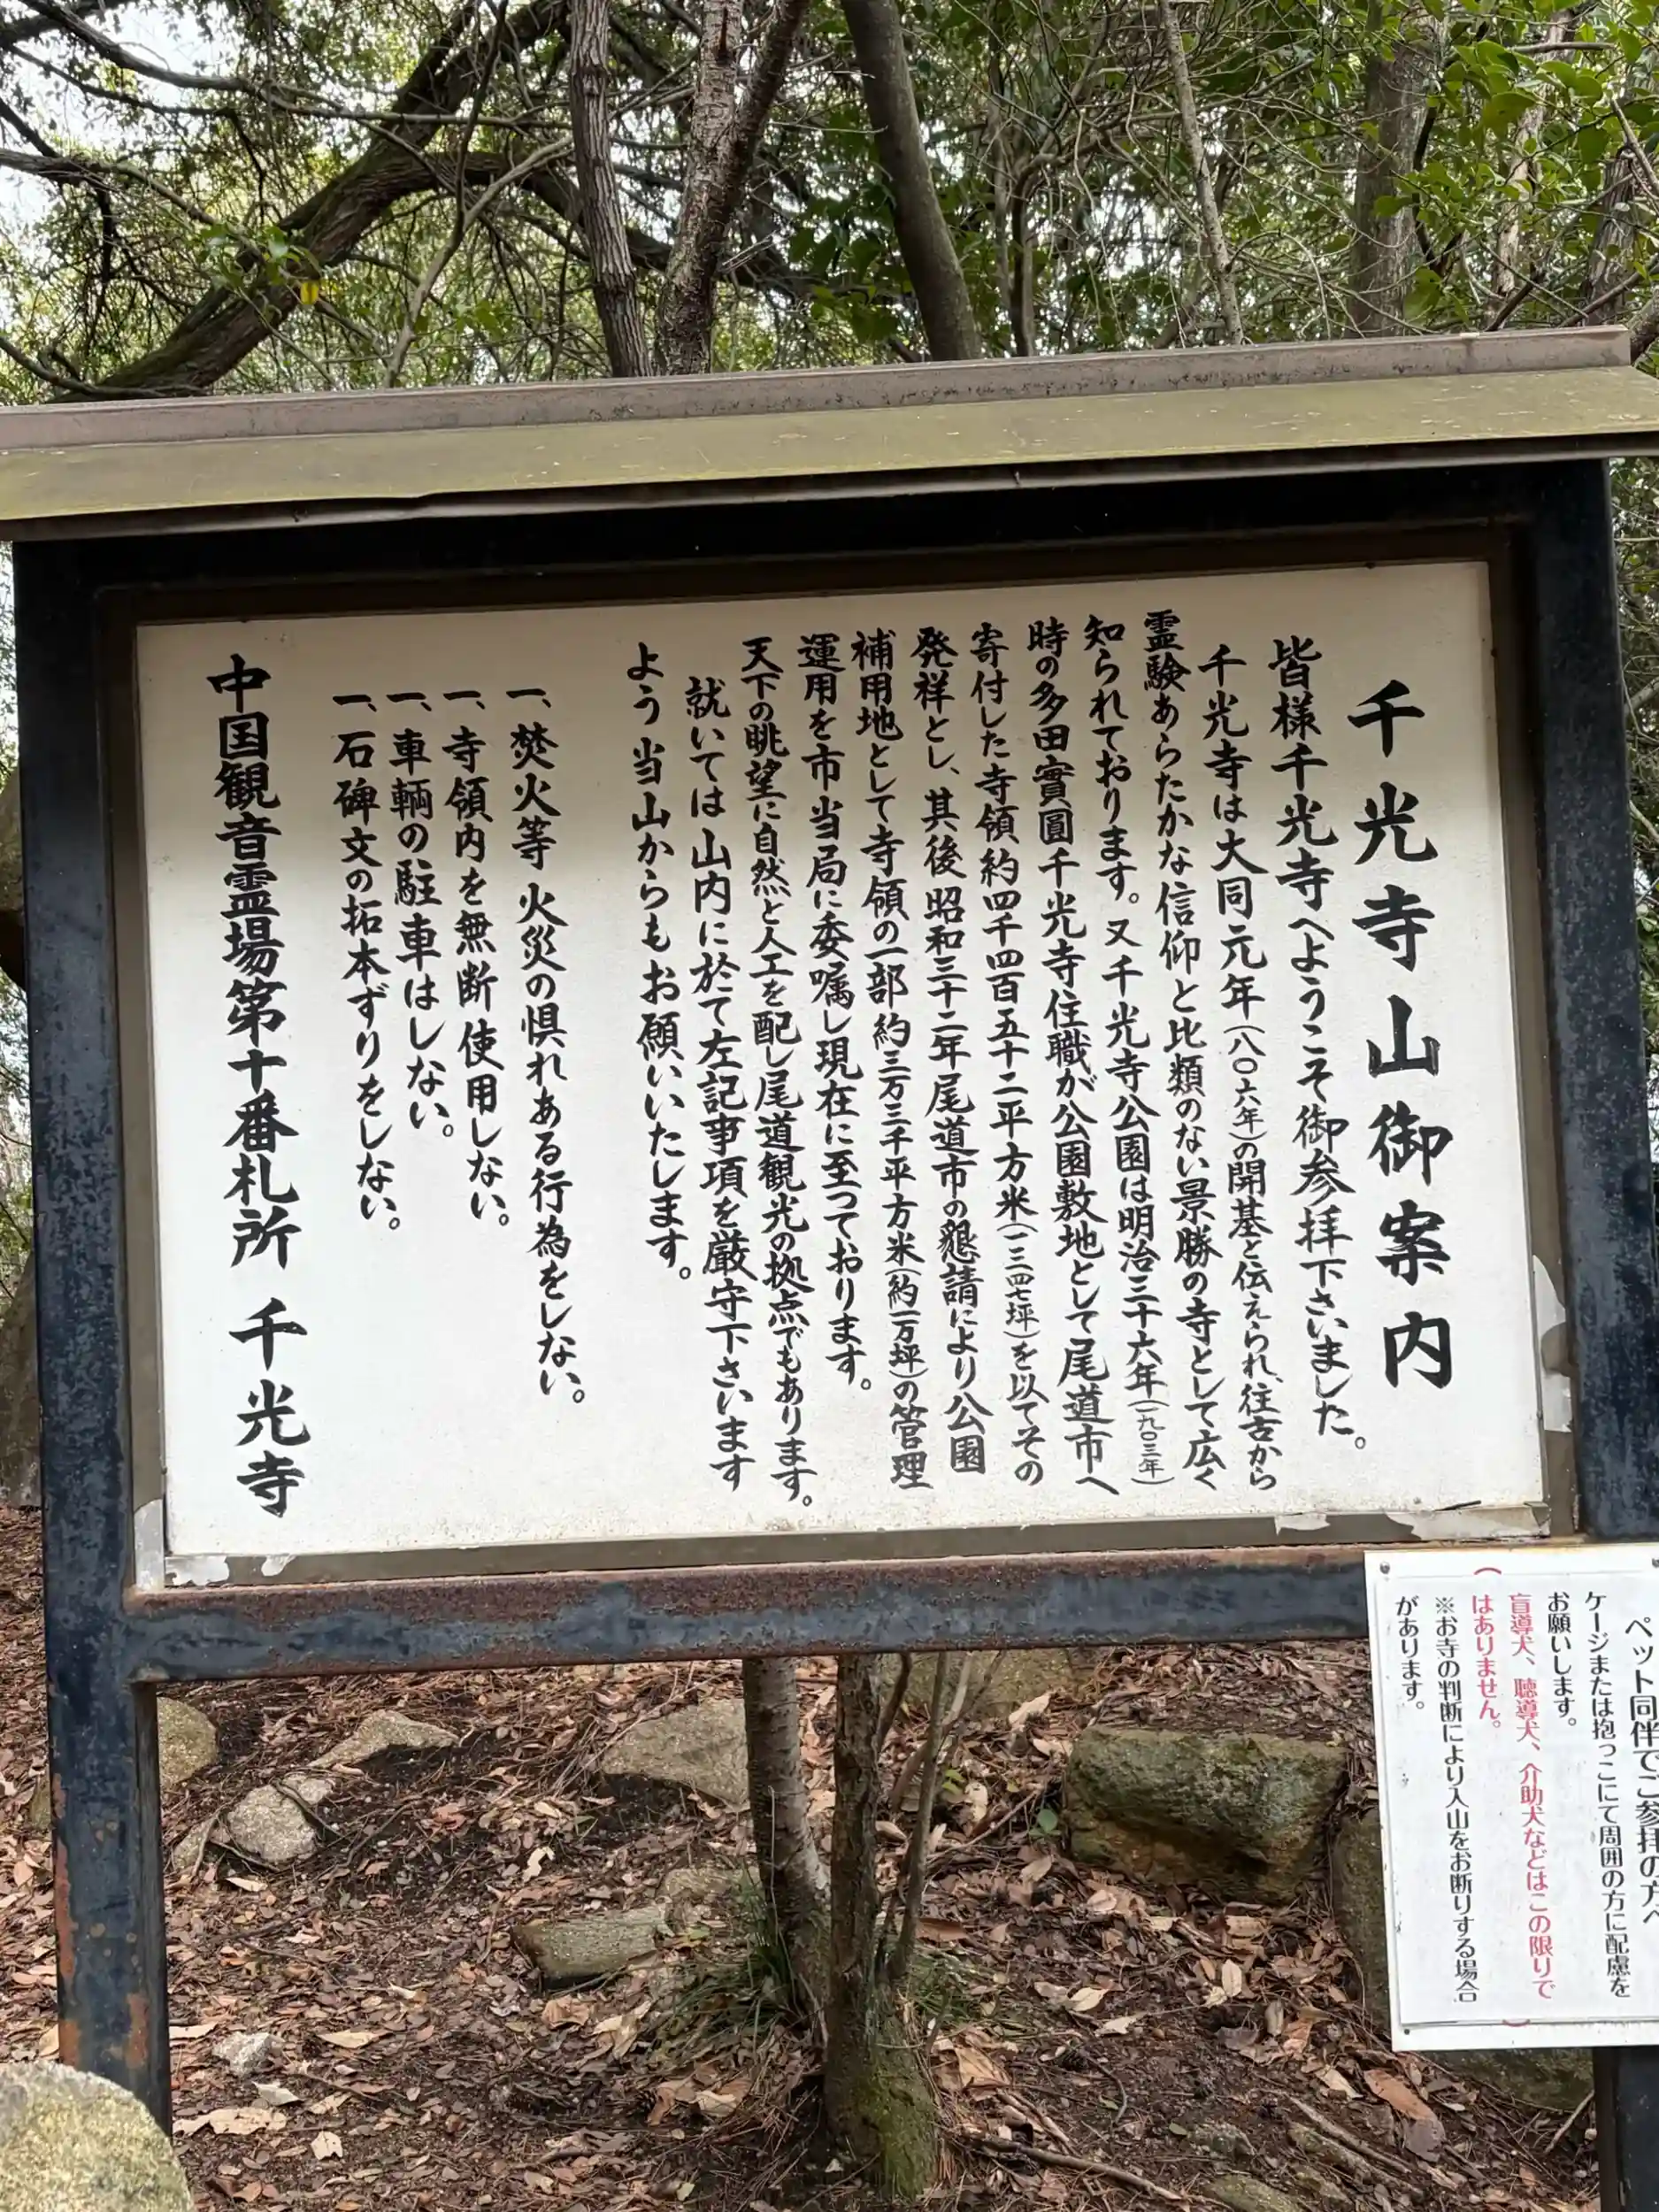 千光寺山御案内
皆様千光寺へようこそ御参拝下さいました。
千光寺は大同元年(八〇六年)の開基と伝えられ、往古から
霊験あらたかな信仰と比類のない景勝の寺として広く
知られております。又千光寺公園は明治三十六年(一九〇三年)
時の多田實圓千光寺住職が公園敷地として尾道市へ
寄付した寺領約四千四百五十二平方米(一三四七坪)を以てその
発祥とし、其後昭和三十二年尾道市の懇請により公園
補用地として寺領の一部約三万三千平方米(約一万坪)の管理
運用を市当局に委嘱し現在に至つております。
天下の眺望に自然と人工を配し尾道観光の拠点でもあります。
就いては山内に於て左記事項を厳守下さいます
よう当山からもお願いいたします。
一、焚火等火災の惧れある行為をしない。
一、寺領内を無断使用しない。
一、車輌の駐車はしない。
一、石碑文の拓本ずりをしない。
中国観音霊場第十番札所 千光寺
ペット同伴でご参拝の方へ
ケージまたは抱っこにて周囲の方に配慮を
お願いします。
(盲導犬、聴導犬、介助犬などはこの限りで
はありません。)
※お寺の判断により入山をお断りする場合
があります。